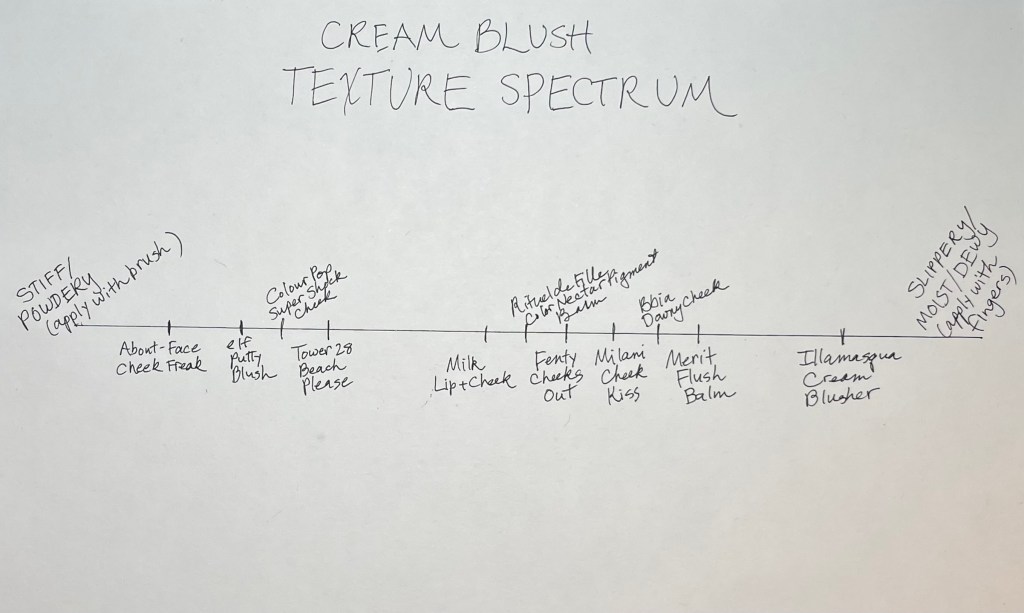 CREAM BLUSH
TEXTURE SPECTRUM
STIFF/
POWDERY
(apply with brush)
About-Face
Cheek Freak
elf
Putty
Blush
Colour Pop
Super Shock
Cheek
Tower 28
Beach
Please
Milk
Lip+Cheek
Rituel de Fille
Color Nectar Pigment
Balm
Fenty
Cheeks
Out
Milani
Cheek
Kiss
Bbia
Downy Cheek
Merit
Flush
Balm
Illamasqua
Cream
Blusher
SLIPPERY/
MOIST/DEWY
(apply with
fingers)